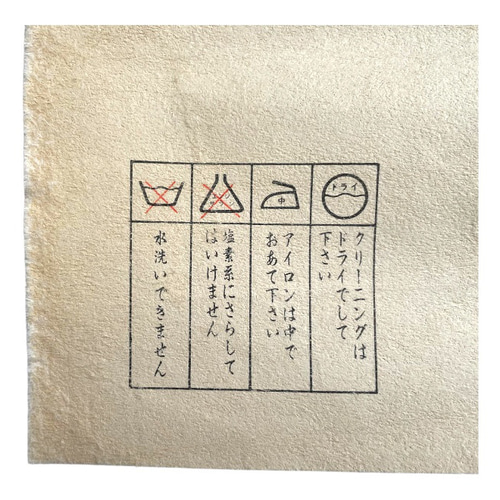 ドライ
中
クリーニングは
ドライでして
下さい
アイロンは中で
おあて下さい
塩素系にさらして
はいけません
水洗いできません